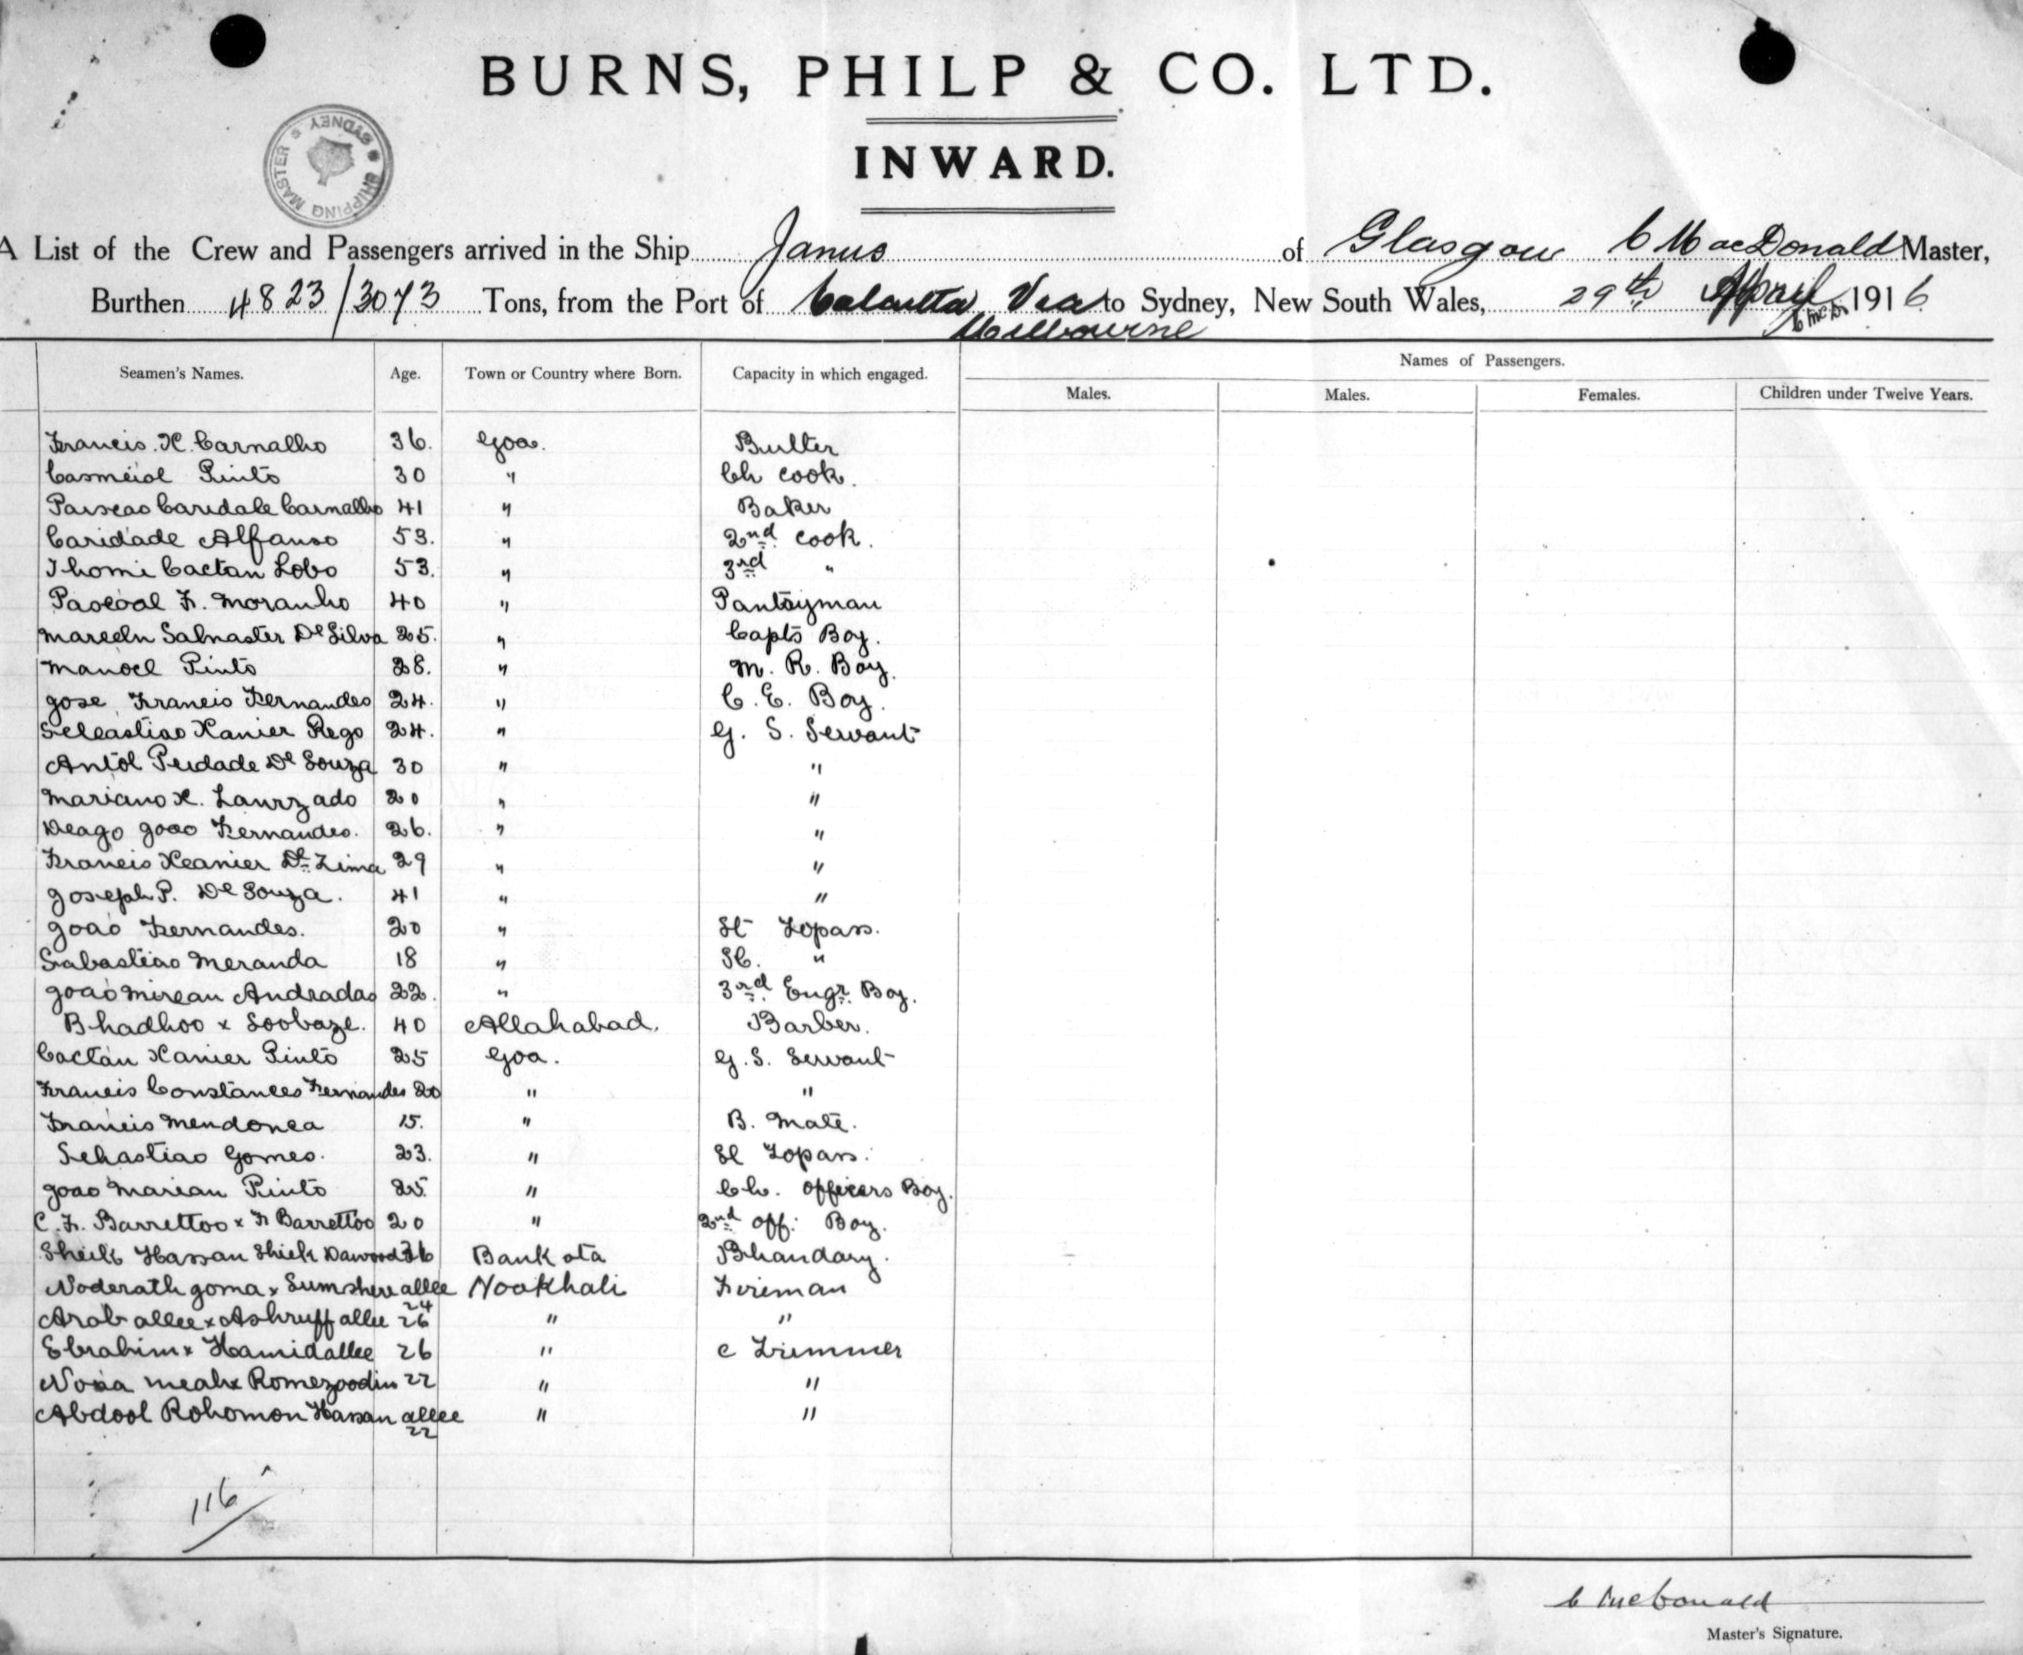 BURNS, PHILP & CO. LTD.
INWARD.
SHIPPING MASTER'S SYDNEY
A List of the Crew and Passengers arrived in the Ship Janus of Glasgow C MacDonald Master,
Burthen 4823/3073 Tons, from the Port of Calcutta Via to Sydney, New South Wales, 29th April 1916
Melbourne
Names of Passengers.
Seamen's Names. Age. Town or Country where Born. Capacity in which engaged. Males. Males. Females. Children under Twelve Years.
Francis. X. Carnalho 36. Goa. Butler
Casmeiol Pinto 30 " Ch cook.
Caridale Carnalho 41 " Baker
Caridade Alfanso 53. " 2nd cook.
Thomi Caetan Lobo 53. " 3rd "
Pascoal F. Moranho 40 " Pantryman
Salnaster De Silva 25. " Capts Boy.
Manoel Pinto 28. " M. R. Boy.
Jose Francis Fernandes 24. " C. E. Boy.
Sebastiao Xanier Rego 24. " G. S. Servant
Antol Peidade De Souza 30 " "
Mariano X. Laurzado 20 " "
Deago Joao Fernandes. 26. " "
Francis Xeanier De Lima 29 " "
Joseph P. De Souza. 41 " "
Joao Fernandes. 20 " St Topass.
Sabastiao Meranda 18 " "
Joao Mirean Andradas 22. " 3rd Engr. Boy.
Bhadhoo x Soobaze. 40 Allahabad. Barber.
Caetan Xanier Pinto 25 Goa. G. S. Servant
Francis Constances Fernandes 20 " "
Francis Mendonca 15. " B. Mate.
Sebastiao Gomes. 23. " Topass.
Joao Marian Pinto 25. " Ch. officers Boy.
C. F. Barrettoo x F Barrettoo 20 " 2nd off: Boy.
Sheik Hassan Shiek Dawood 36 Bankota Bhandary.
Noderath goma x Sumshere allee 24 Noakhali Fireman
Arab allee x Ashruff allee 26 " "
Ebrahim x Hamidallee 26 " c Trimmer
Nova meah x Romezoodin 22 " "
Abdool Rohomon Hassan allee 22 " "
116
C McDonald
Master's Signature.